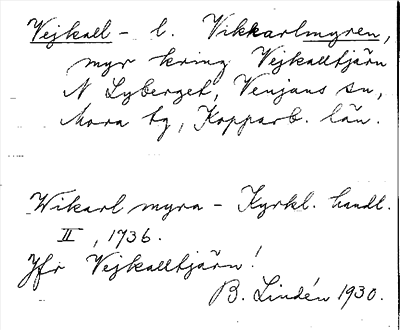 Vejkall - l. Vikkarlmyren,
myr kring Vejkalltjärn
N Lyberget, Venjans sn,
Mora tg, Kopparb. län.
Wikarl myra - Kyrkl. handl.
II, 1736.
Jfr Vejkalltjärn!
B. Lindén 1930.